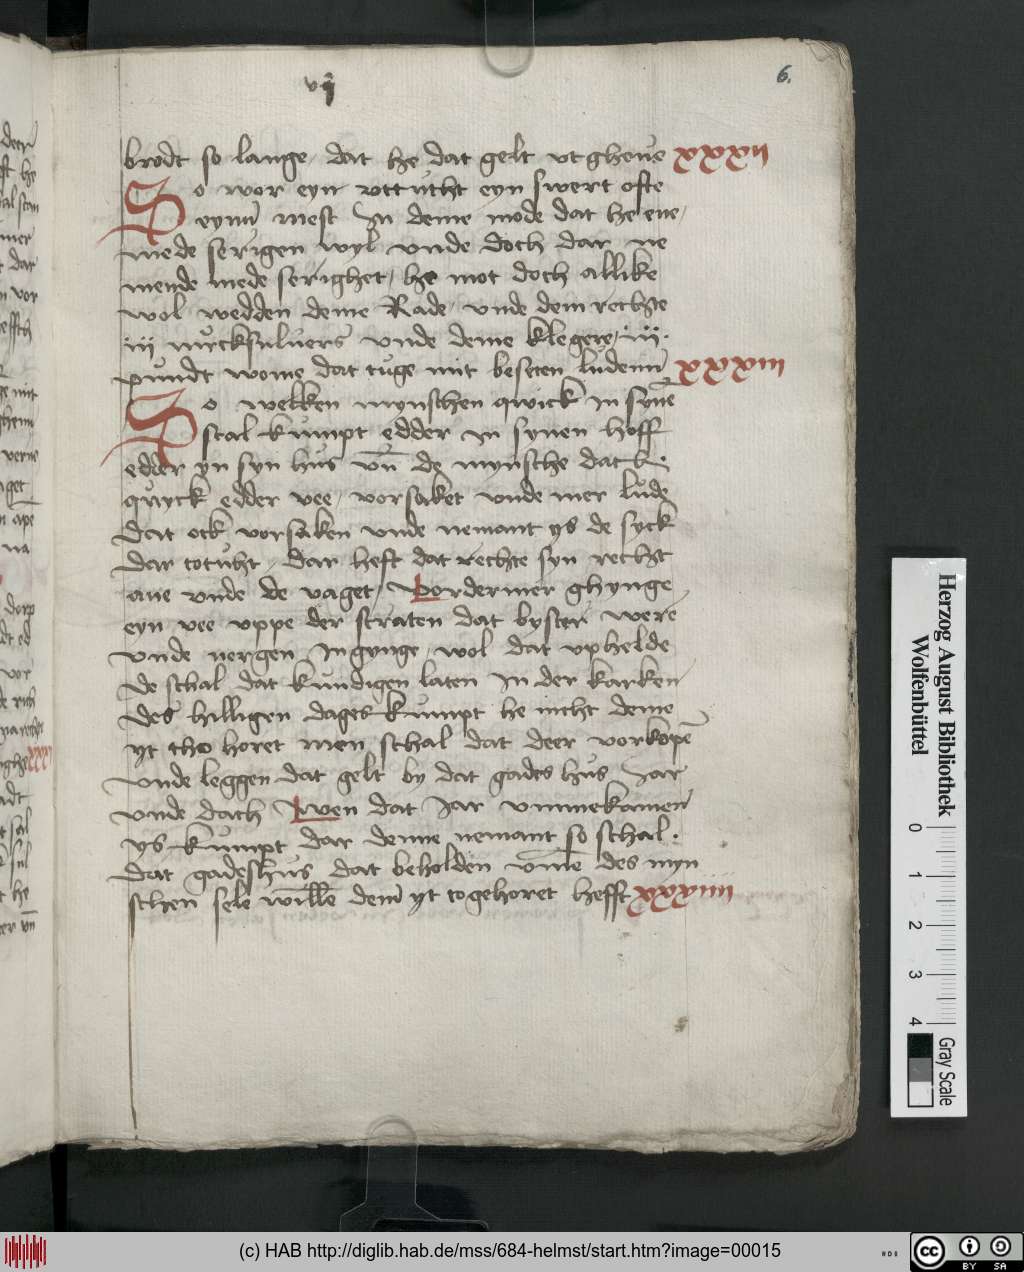 vj
6.
brodt so lange dat he dat gelt vtgheue xxxij
So wor eyn vttucht eyn swert ofte
eynn mest In deme mode dat he ene
mede serigen wyl vnde doch dar ne
mende mede serighet he mot doch allike
wol wedden deme Rade vnde dem rechte
iij virckfuluers vnde deme klegere iij
pundt wome dat tuge mit beseten luden xxxiij
So welken mynschen qwick in syne
stal kumpt edder in synen hoff
edder yn syn hus vn de mynsche dat
quyck edder vee vorsaket vnde mer lude
dat ock vorsaken vnde nemant ys de syck
dar totuht dar heft dat rechte syn recht
ane vnde de vaget Vordermer ghynge
eyn vee vppe der straten dat byster were
vnde nergen Ingynge wol dat vphelde
de schal dat kundigen laten In der karken
des hilligen dages kumpt he nicht deme
yt tho horet men schal dat deer vorkope
vnde leggen dat gelt by dat gades hus Jar
vnde dach Wen dat Jar vmmekamen
ys kumpt dar denne nemant so schal
dat gadeshus dat beholden vme des myn
schen sele wille dem yt togehoret hefft xxxiiij
Herzog August Bibliothek
Wolfenbüttel
0 1 2 3 4
Gray Scale
(c) HAB http://diglib.hab.de/mss/684-helmst/start.htm?image=00015
cc BY SA